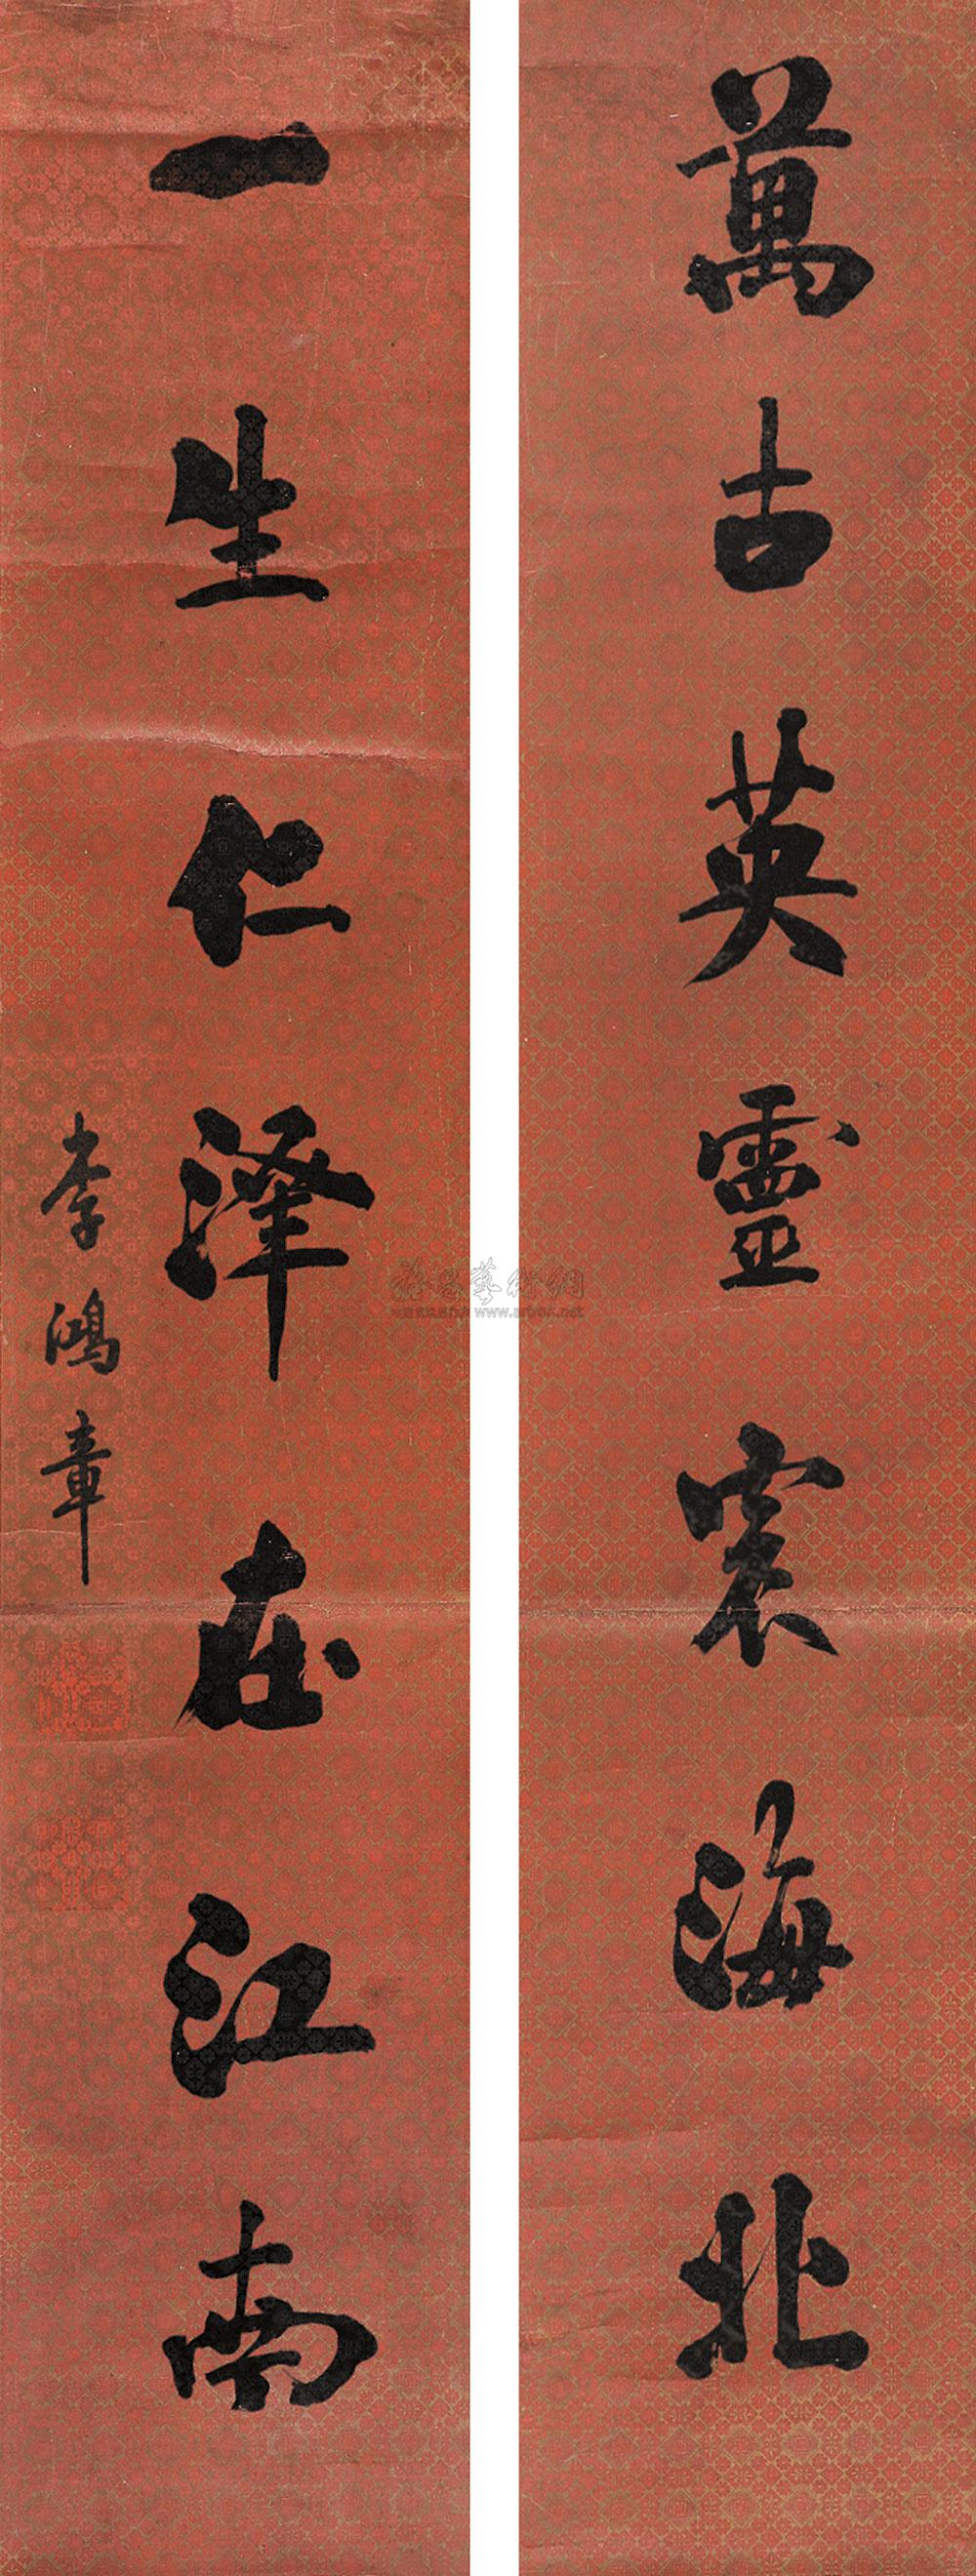 萬古英靈寰海北
一生仁澤在江南
李鴻章
www.artron.net